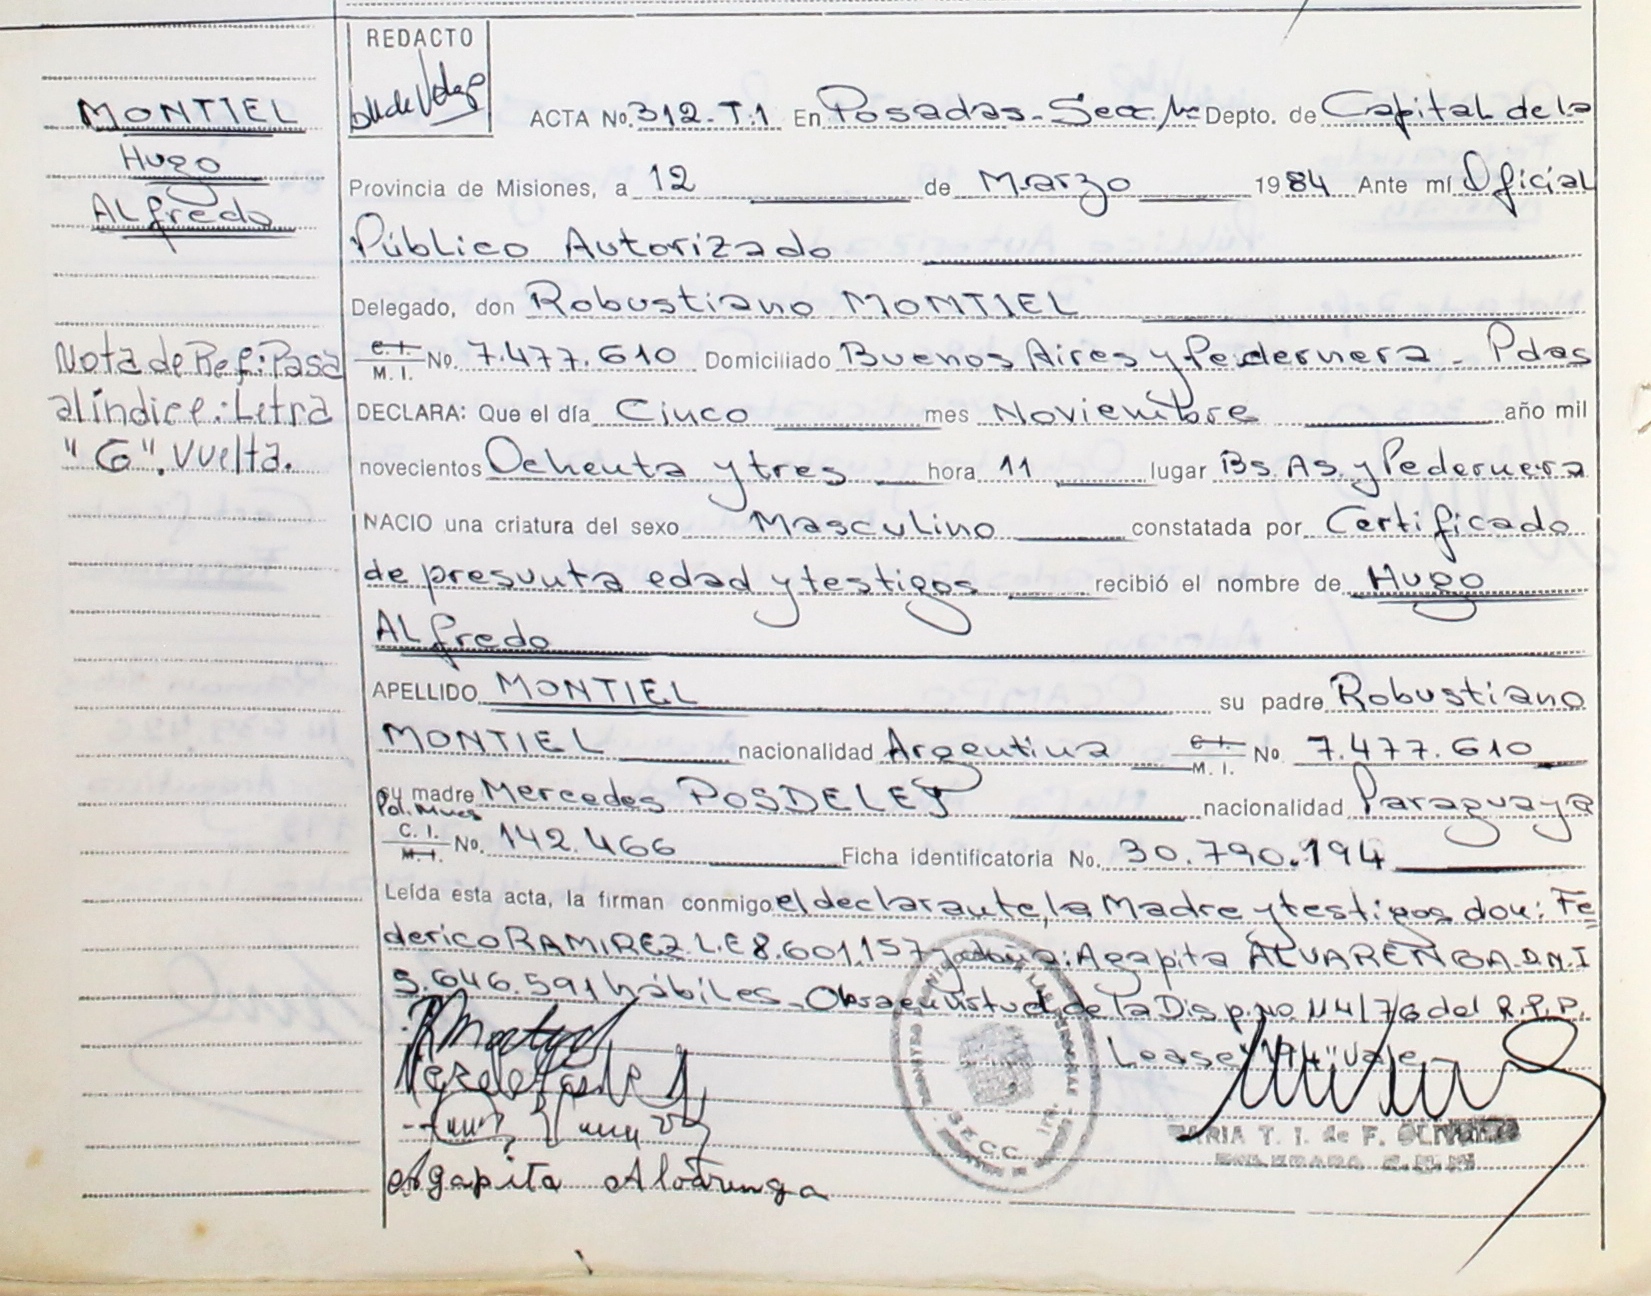 REDACTO
MONTIEL
Hugo
ALfredo
Nota de Ref: Pasa
al índice: Letra
"G". Vuelta.
ACTA No. 312-T.1 En Posadas-Secc. Depto. de Capital de la
Provincia de Misiones, a 12 de Marzo 1984 Ante mí Oficial
Público Autorizado
Delegado, don Robustiano MONTIEL
C. I. M. I. No. 7.477.610 Domiciliado Buenos Aires y Pedernera - Pdas
DECLARA: Que el día Cinco mes Noviembre año mil
novecientos Ochenta y tres hora 11 lugar Bs. As. y Pedernera
NACIO una criatura del sexo Masculino constatada por Certificado
de presunta edad y testigos recibió el nombre de Hugo
ALfredo
APELLIDO MONTIEL su padre Robustiano
MONTIEL nacionalidad Argentina C. I. M. I. No 7.477.610
su madre Mercedes POSDELEJ nacionalidad Paraguaya
Pol. Mnes C. I. M. I. No. 142.466 Ficha identificatoria No. 30.790.194
Leída esta acta, la firman conmigo el declarante, la Madre y testigos don: Fe
derico RAMIREZ L.E 8.601.157 y doña: Agapita ALVARENGA D.N.I
5.646.591 hábiles - Obra en virtud de la Disp. no 114/76 del R.P.P.
Lease "194" Vale
Agapita Alvarenga
S.E.C.C.
MARIA T. I. de F.